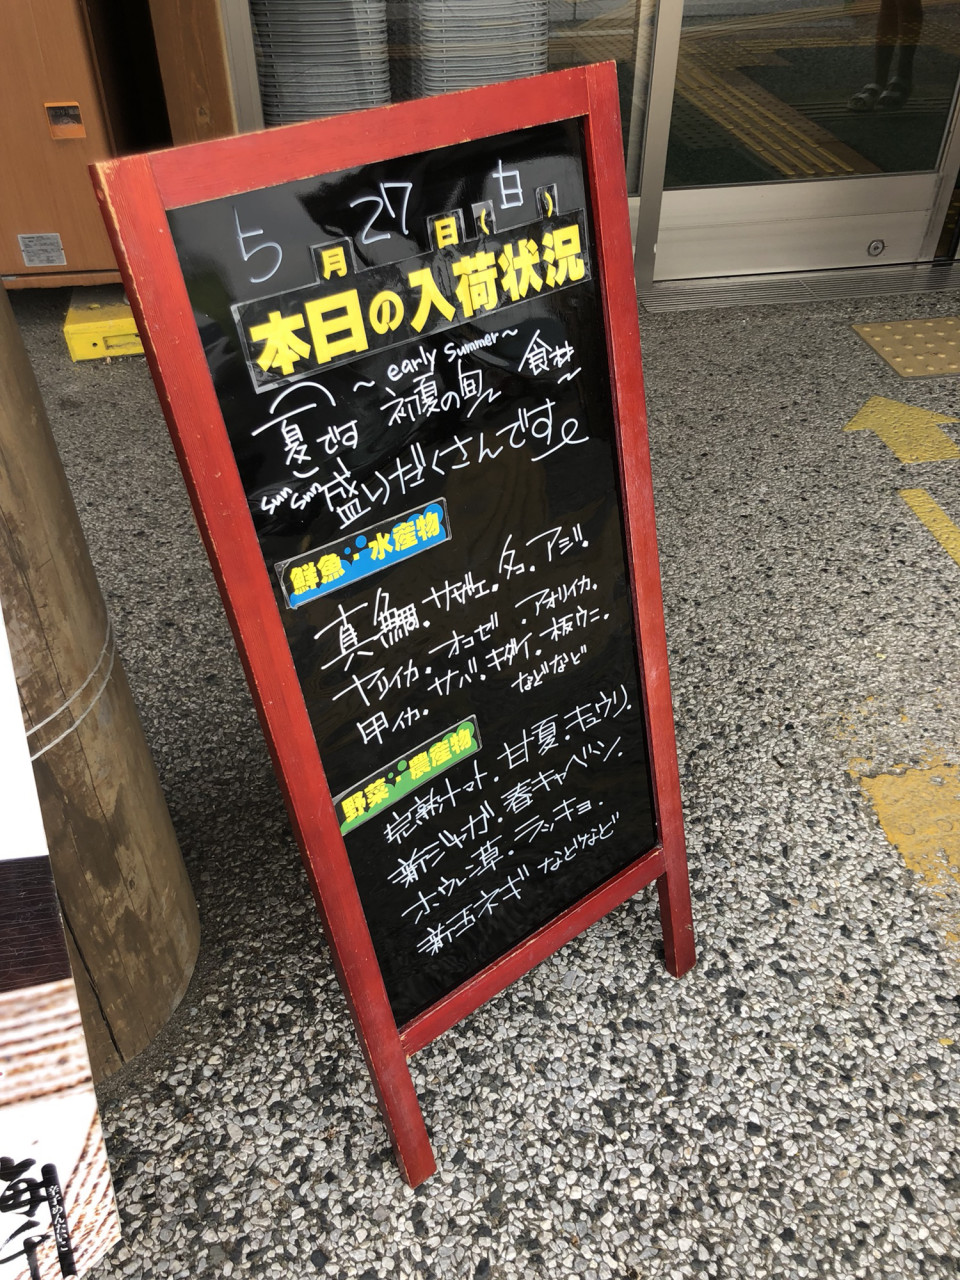 5月27日(日)
本日の入荷状況
~ early summer ~
夏です 初夏の旬 食材
sun sun 盛りだくさんです
鮮魚・水産物
真鯛.サザエ.タコ.アジ.
ヤリイカ.オコゼ.アオリイカ.
甲イカ.サバ.キダイ.板ウニ.
などなど
野菜・農産物
完熟トマト.甘夏.キュウリ.
新ジャガ.春キャベツ.
ホウレン草.ラッキョ.
新玉ネギ などなど
辛子めんたいこ